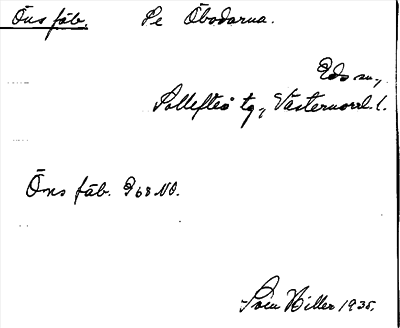 Öns fäb. Se Öbodarna.
Eds sn,
Sollefteå tg, Västernorrl. l.
Öns fäb. 968 NO.
Sven Hiller 1935.